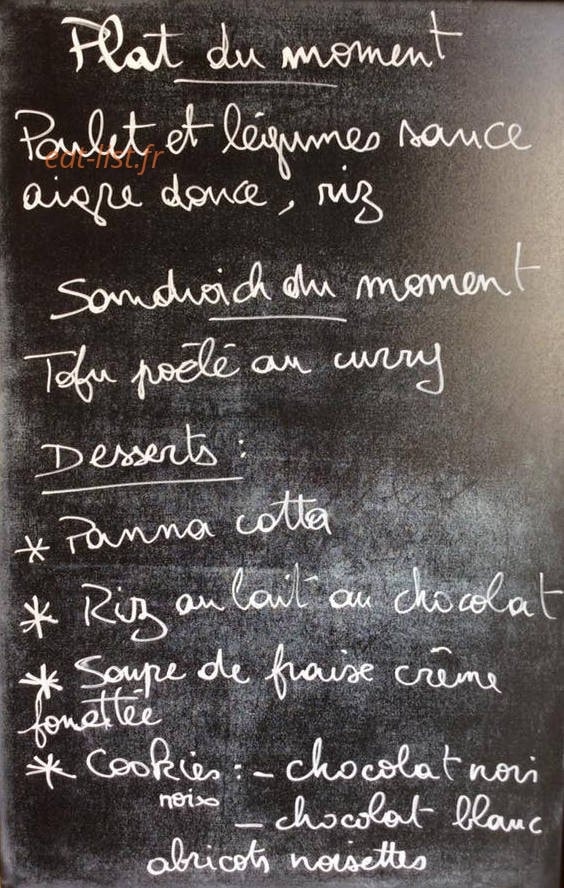 Plat du moment
Poulet et légumes sauce
eat-list.fr
aigre douce, riz
Sandwich du moment
Tofu poêlé au curry
Desserts :
* Panna cotta
* Riz au lait au chocolat
* Soupe de fraise crême
fouettée
* Cookies : - chocolat noir
noix
- chocolat blanc
abricots noisettes